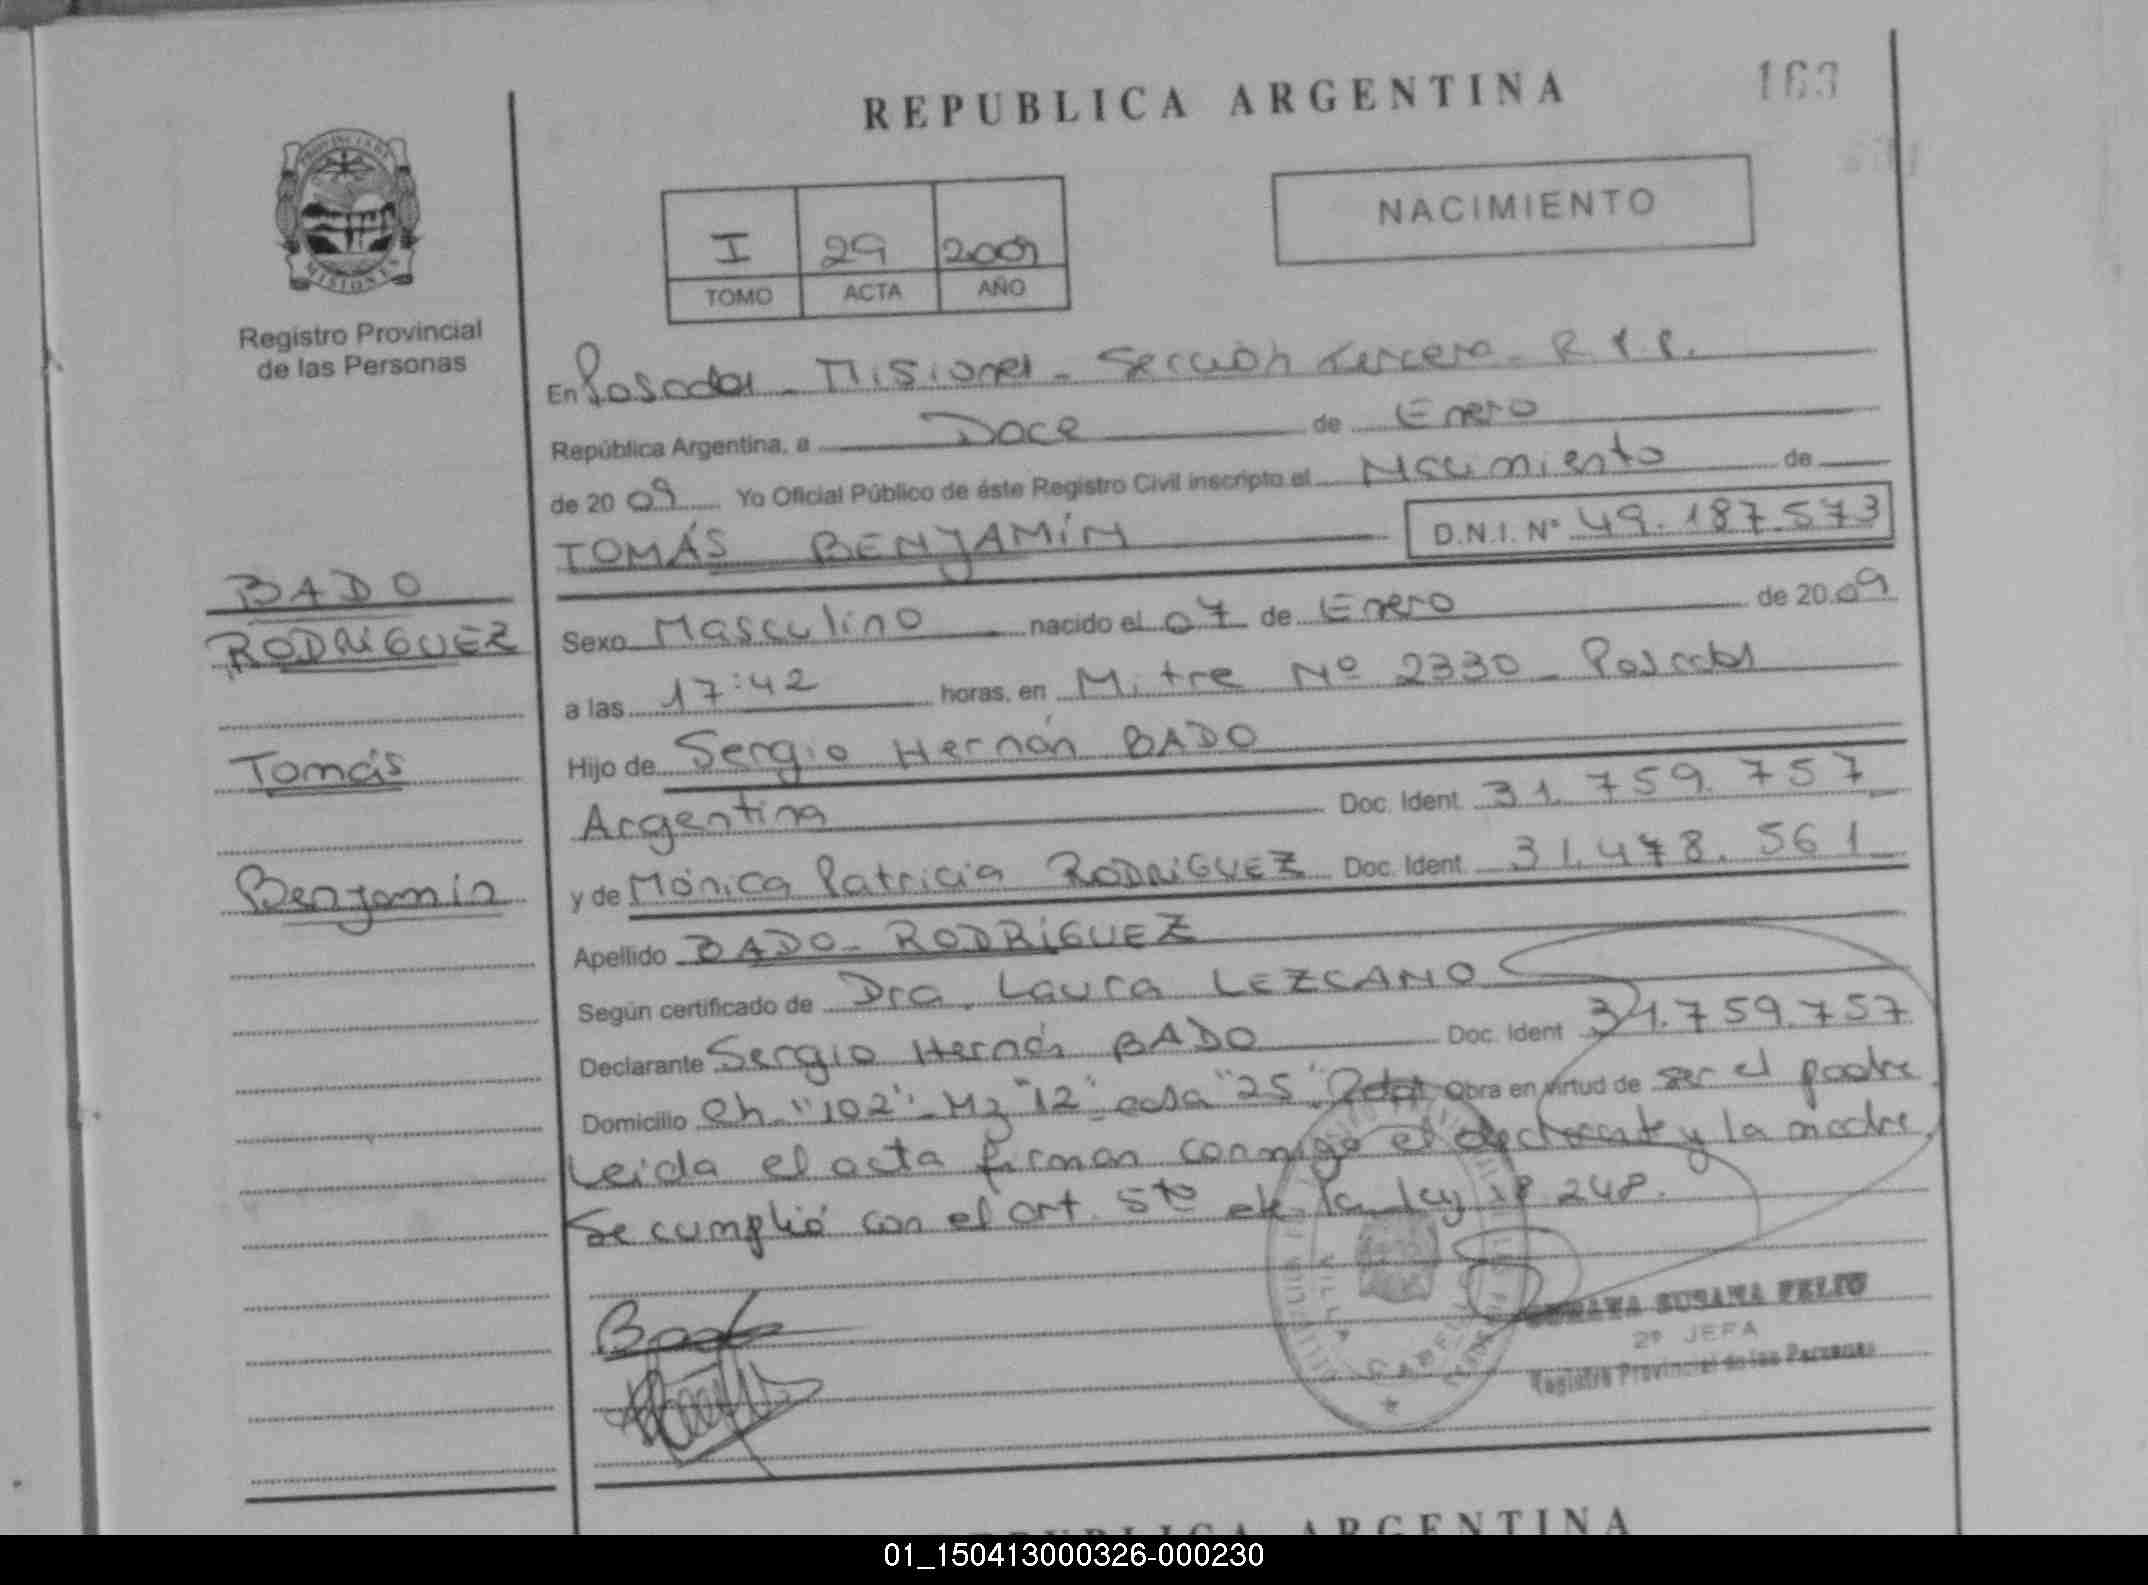 REPUBLICA ARGENTINA
163
PROVINCIA DE
MISIONES
Registro Provincial
de las Personas
I 29 2009
TOMO ACTA AÑO
NACIMIENTO
En Posadas - Misiones - Sección tercera - R.P.P.
República Argentina, a Doce de Enero
de 2009 Yo Oficial Público de éste Registro Civil inscripto el Nacimiento de
TOMÁS BENJAMÍN D.N.I. Nº 49.187.573
BADO
RODRÍGUEZ
Tomás
Benjamín
Sexo Masculino nacido el 07 de Enero de 2009
a las 17:42 horas, en Mitre Nº 2330 - Posadas
Hijo de Sergio Hernán BADO
Argentina Doc. Ident. 31.759.757
y de Mónica Patricia RODRÍGUEZ Doc. Ident. 31.478.561
Apellido BADO - RODRÍGUEZ
Según certificado de Dra. Laura LEZCANO
Declarante Sergio Hernán BADO Doc. Ident 31.759.757
Domicilio Ch. "102" - Mz "12" casa "25" Obra en virtud de ser el padre
Leída el acta firman conmigo el declarante y la madre
Se cumplió con el art. 5to de la ley 18.248.
SUSANA FELIU
2ª JEFA
Registro Provincial de las Personas
VILLA CABELLO
REPUBLICA ARGENTINA
01_150413000326-000230